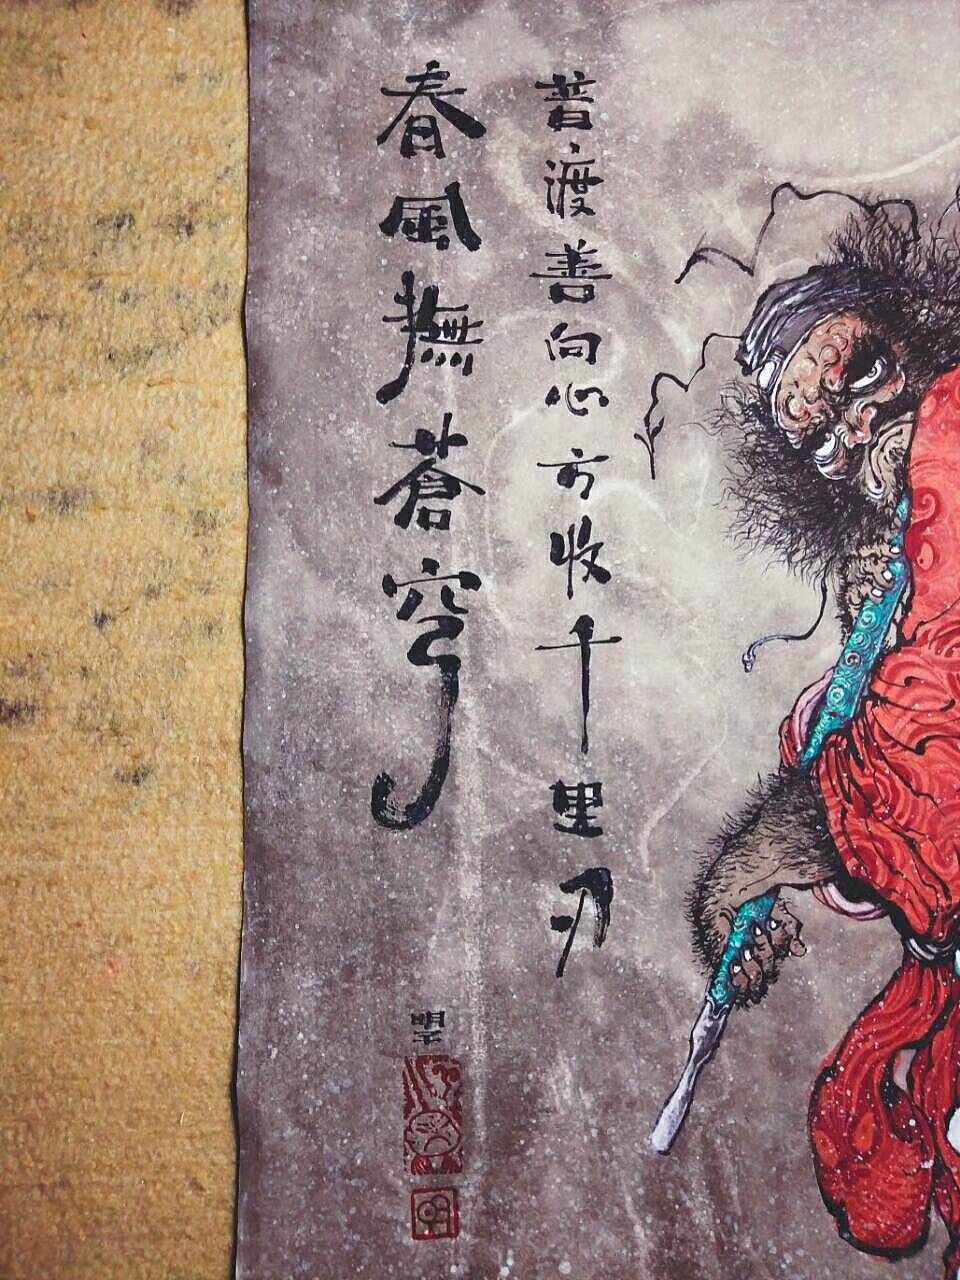 普渡善向心方收千里刃
春風撫蒼穹